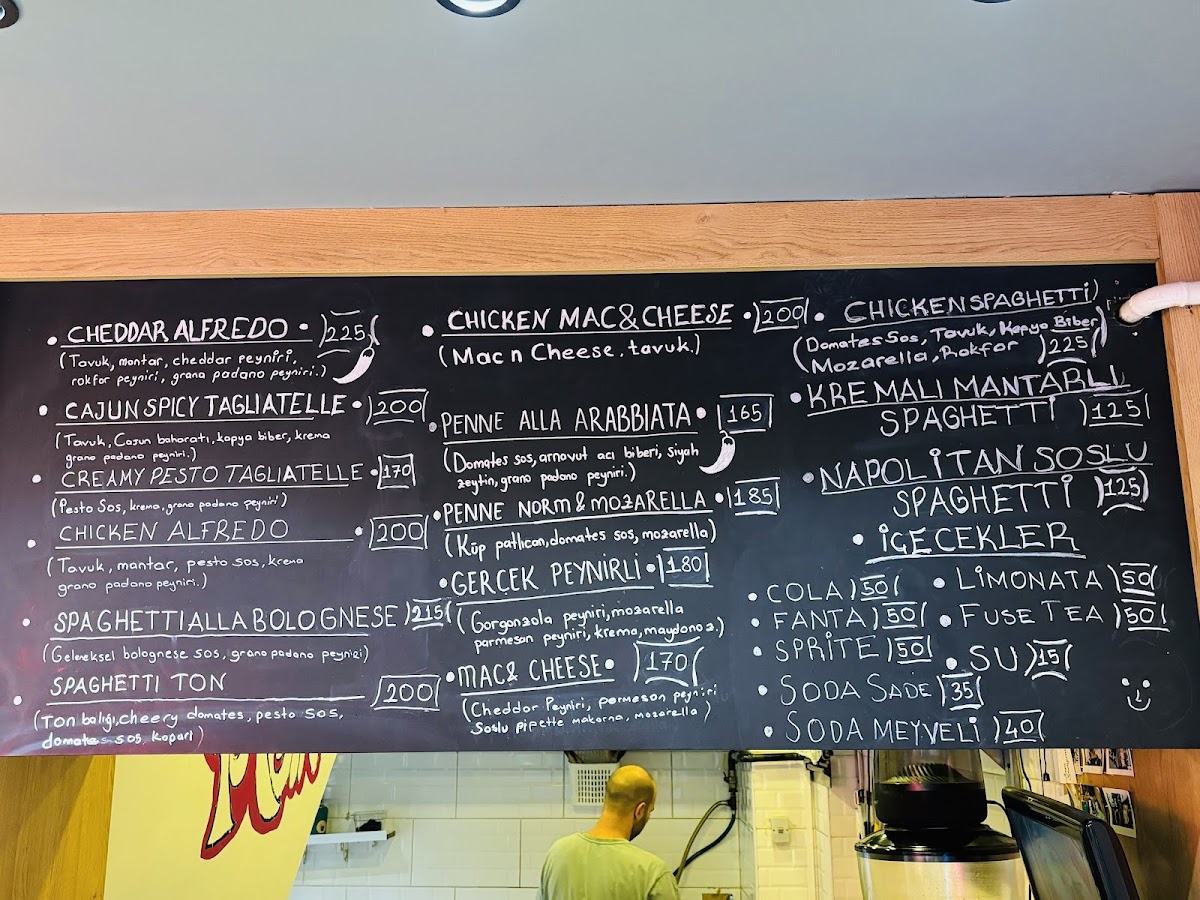 CHEDDAR ALFREDO • 225
(Tavuk, mantar, cheddar peyniri,
rokfor peyniri, grana padano peyniri.)
CAJUN SPICY TAGLIATELLE • 200
(Tavuk, Cajun baharatı, kapya biber, krema
grano padano peyniri.)
CREAMY PESTO TAGLIATELLE • 170
(Pesto Sos, krema, grano padano peyniri)
CHICKEN ALFREDO • 200
(Tavuk, mantar, pesto sos, krema
grano padano peyniri.)
SPAGHETTI ALLA BOLOGNESE 215
(Geleneksel bolognese sos, grano padano peyniri)
SPAGHETTI TON 200
(Ton balığı, cheery domates, pesto sos,
domates sos, kapari)
CHICKEN MAC&CHEESE • 200
(Mac n Cheese, tavuk.)
PENNE ALLA ARABBIATA • 165
(Domates sos, arnavut acı biberi, siyah
zeytin, grano padano peyniri.)
PENNE NORM & MOZARELLA • 185
(Küp patlıcan, domates sos, mozarella)
GERÇEK PEYNİRLİ • 180
(Gorgonzola peyniri, mozarella
parmesan peyniri, krema, maydonoz.)
MAC& CHEESE • 170
(Cheddar Peyniri, parmesan peyniri
Soslu pipette makarna, mozarella)
CHICKEN SPAGHETTİ
(Domates Sos, Tavuk, Kapya Biber
Mozarella, Rokfor 225
KREMALI MANTARLI
SPAGHETTİ 125
NAPOLİTAN SOSLU
SPAGHETTİ 125
İÇECEKLER
COLA 50
FANTA 50
SPRİTE 50
SODA SADE 35
SODA MEYVELİ 40
LİMONATA 50
FUSE TEA 50
SU 15